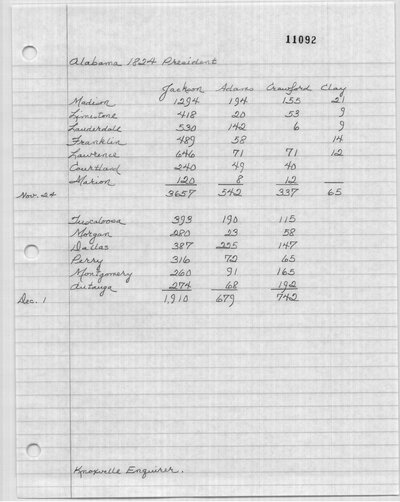 11092
Alabama 1824 President
Jackson Adams Crawford Clay
Madison 1294 194 155 21
Limestone 418 20 53 9
Lauderdale 530 142 6 9
Franklin 489 58 14
Lawrence 646 71 71 12
Courtland 240 49 40
Marion 120 8 12
Nov. 24 3657 542 337 65
Tuscaloosa 393 190 115
Morgan 280 23 58
Dallas 387 235 147
Perry 316 72 65
Montgomery 260 91 165
Autauga 274 68 192
Dec. 1 1,910 679 742
Knoxville Enquirer.